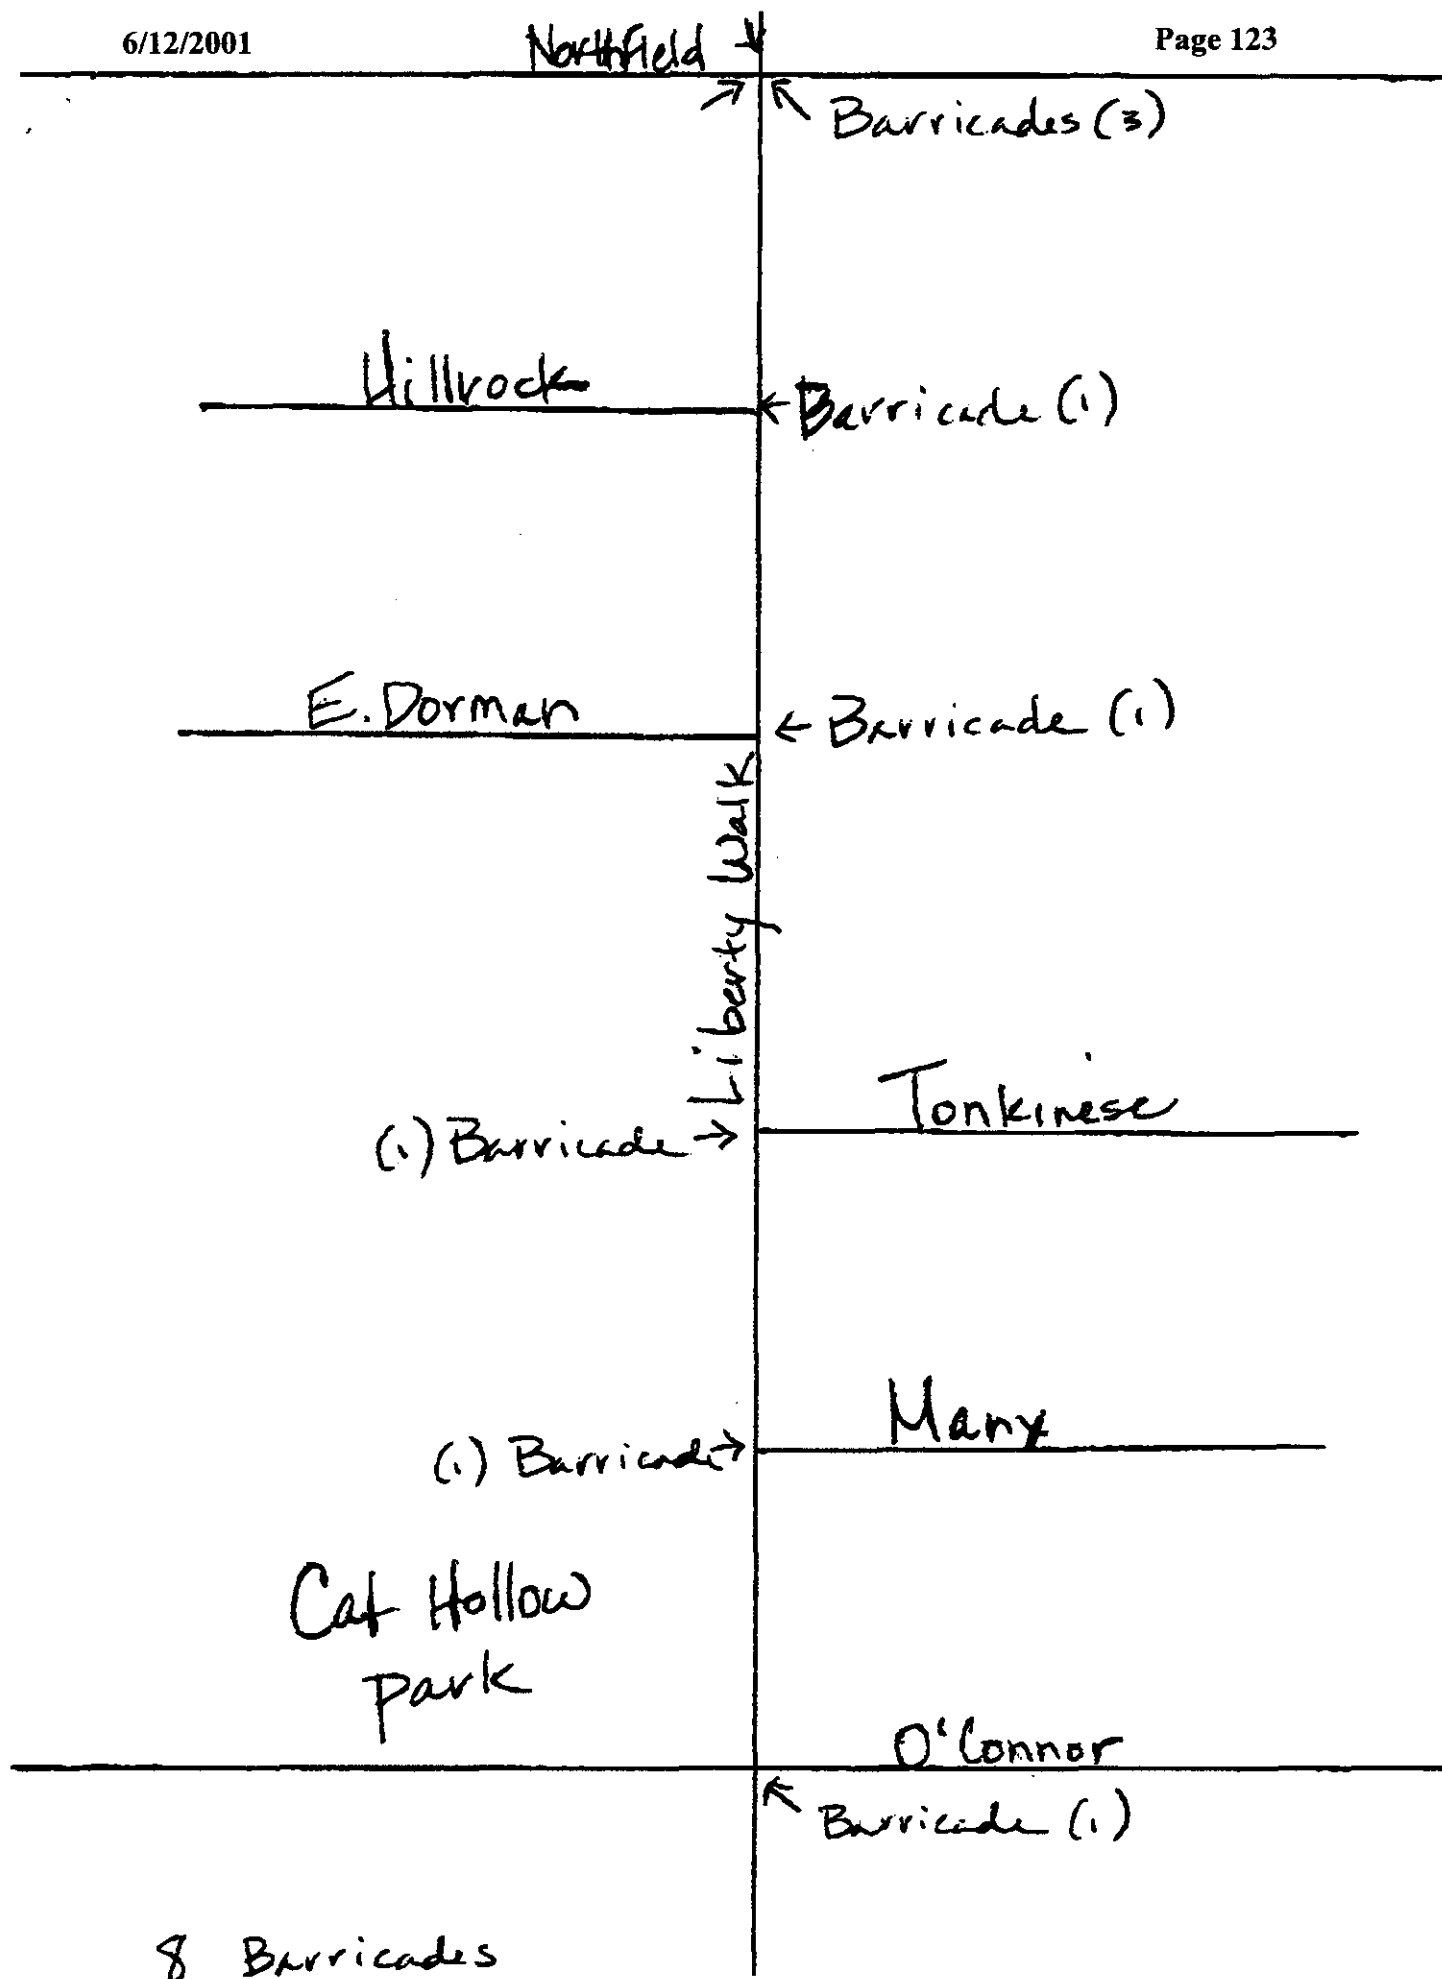 6/12/2001
Page 123
Northfield
Barricades (3)
Hillrock
Barricade (1)
E. Dorman
Barricade (1)
Liberty Walk
Tonkinese
(1) Barricade
Manx
(1) Barricade
Cat Hollow
Park
O'Connor
Barricade (1)
8 Barricades